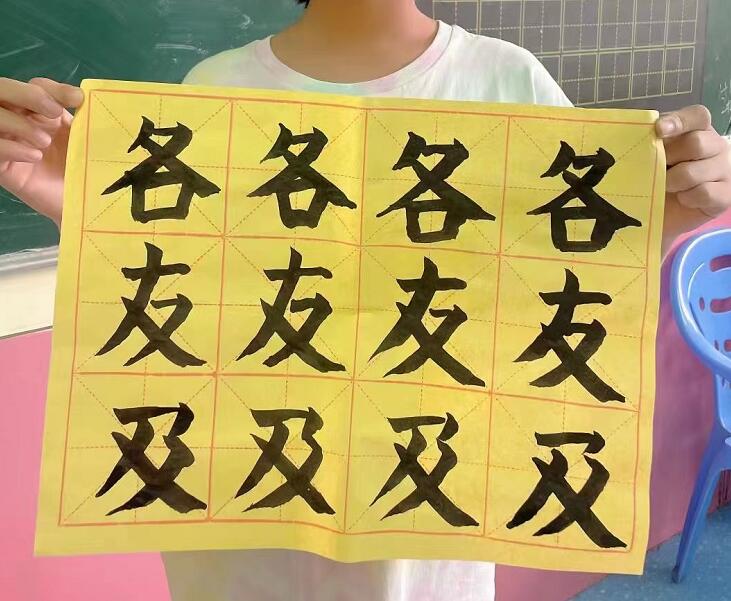 各各各各
友友友友
及及及及